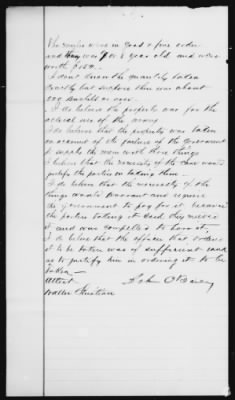 The mules were in good & fine order
and they was 7 or 8 year old and were
worth $150.
I don't know the quantity taken
exactly but suppose there was about
200 bushels or over.
I do believe the property was for the
actual use of the army
I do believe that the property was taken
on account of the failure of the government
to supply the men with those things
I believe that the necessity of the case would
justify the parties in taking them
I do believe that the necessity of the
things would warrant and require
the government to pay for it because
the parties taking it said they needed
it and was compelled to have it,
I do believe that the officer that ordered
it to be taken was of sufficient rank
as to justify him in ordering it to be
taken
Attest John
Walter